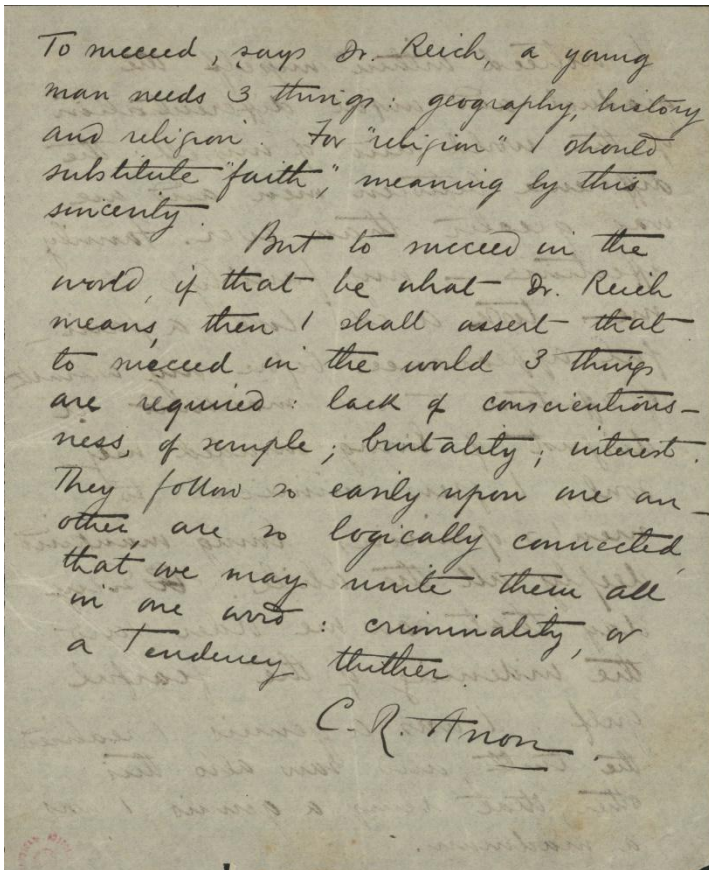 To succeed, says Dr. Reich, a young
man needs 3 things: geography, history
and religion. For "religion" I should
substitute "faith", meaning by this
sincerity.
But to succeed in the
world, if that be what Dr. Reich
means, then I shall assert that
to succeed in the world 3 things
are required: lack of conscientious-
ness, of scruple; brutality; interest.
They follow so easily upon one an-
other, are so logically connected,
that we may unite them all
in one word: criminality, or
a tendency thither.
C. R. Anon